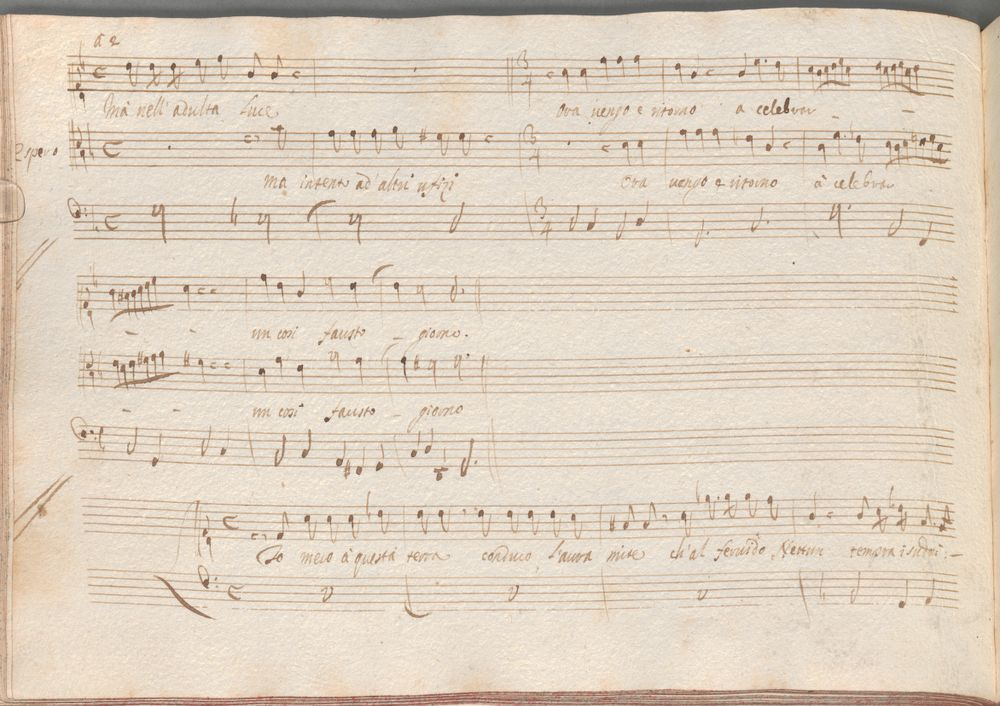 à 2
Ma nell' adulta luce Ora vengo e ritorno a celebrar - -
Espero
ma intento ad' altri ufizi Ora vengo e ritorno à celebrar
- - un così fausto - giorno.
- - un così fausto - giorno
Io meco à questa terra conduco l'aura mite ch'al feruido tempra i sudori: -